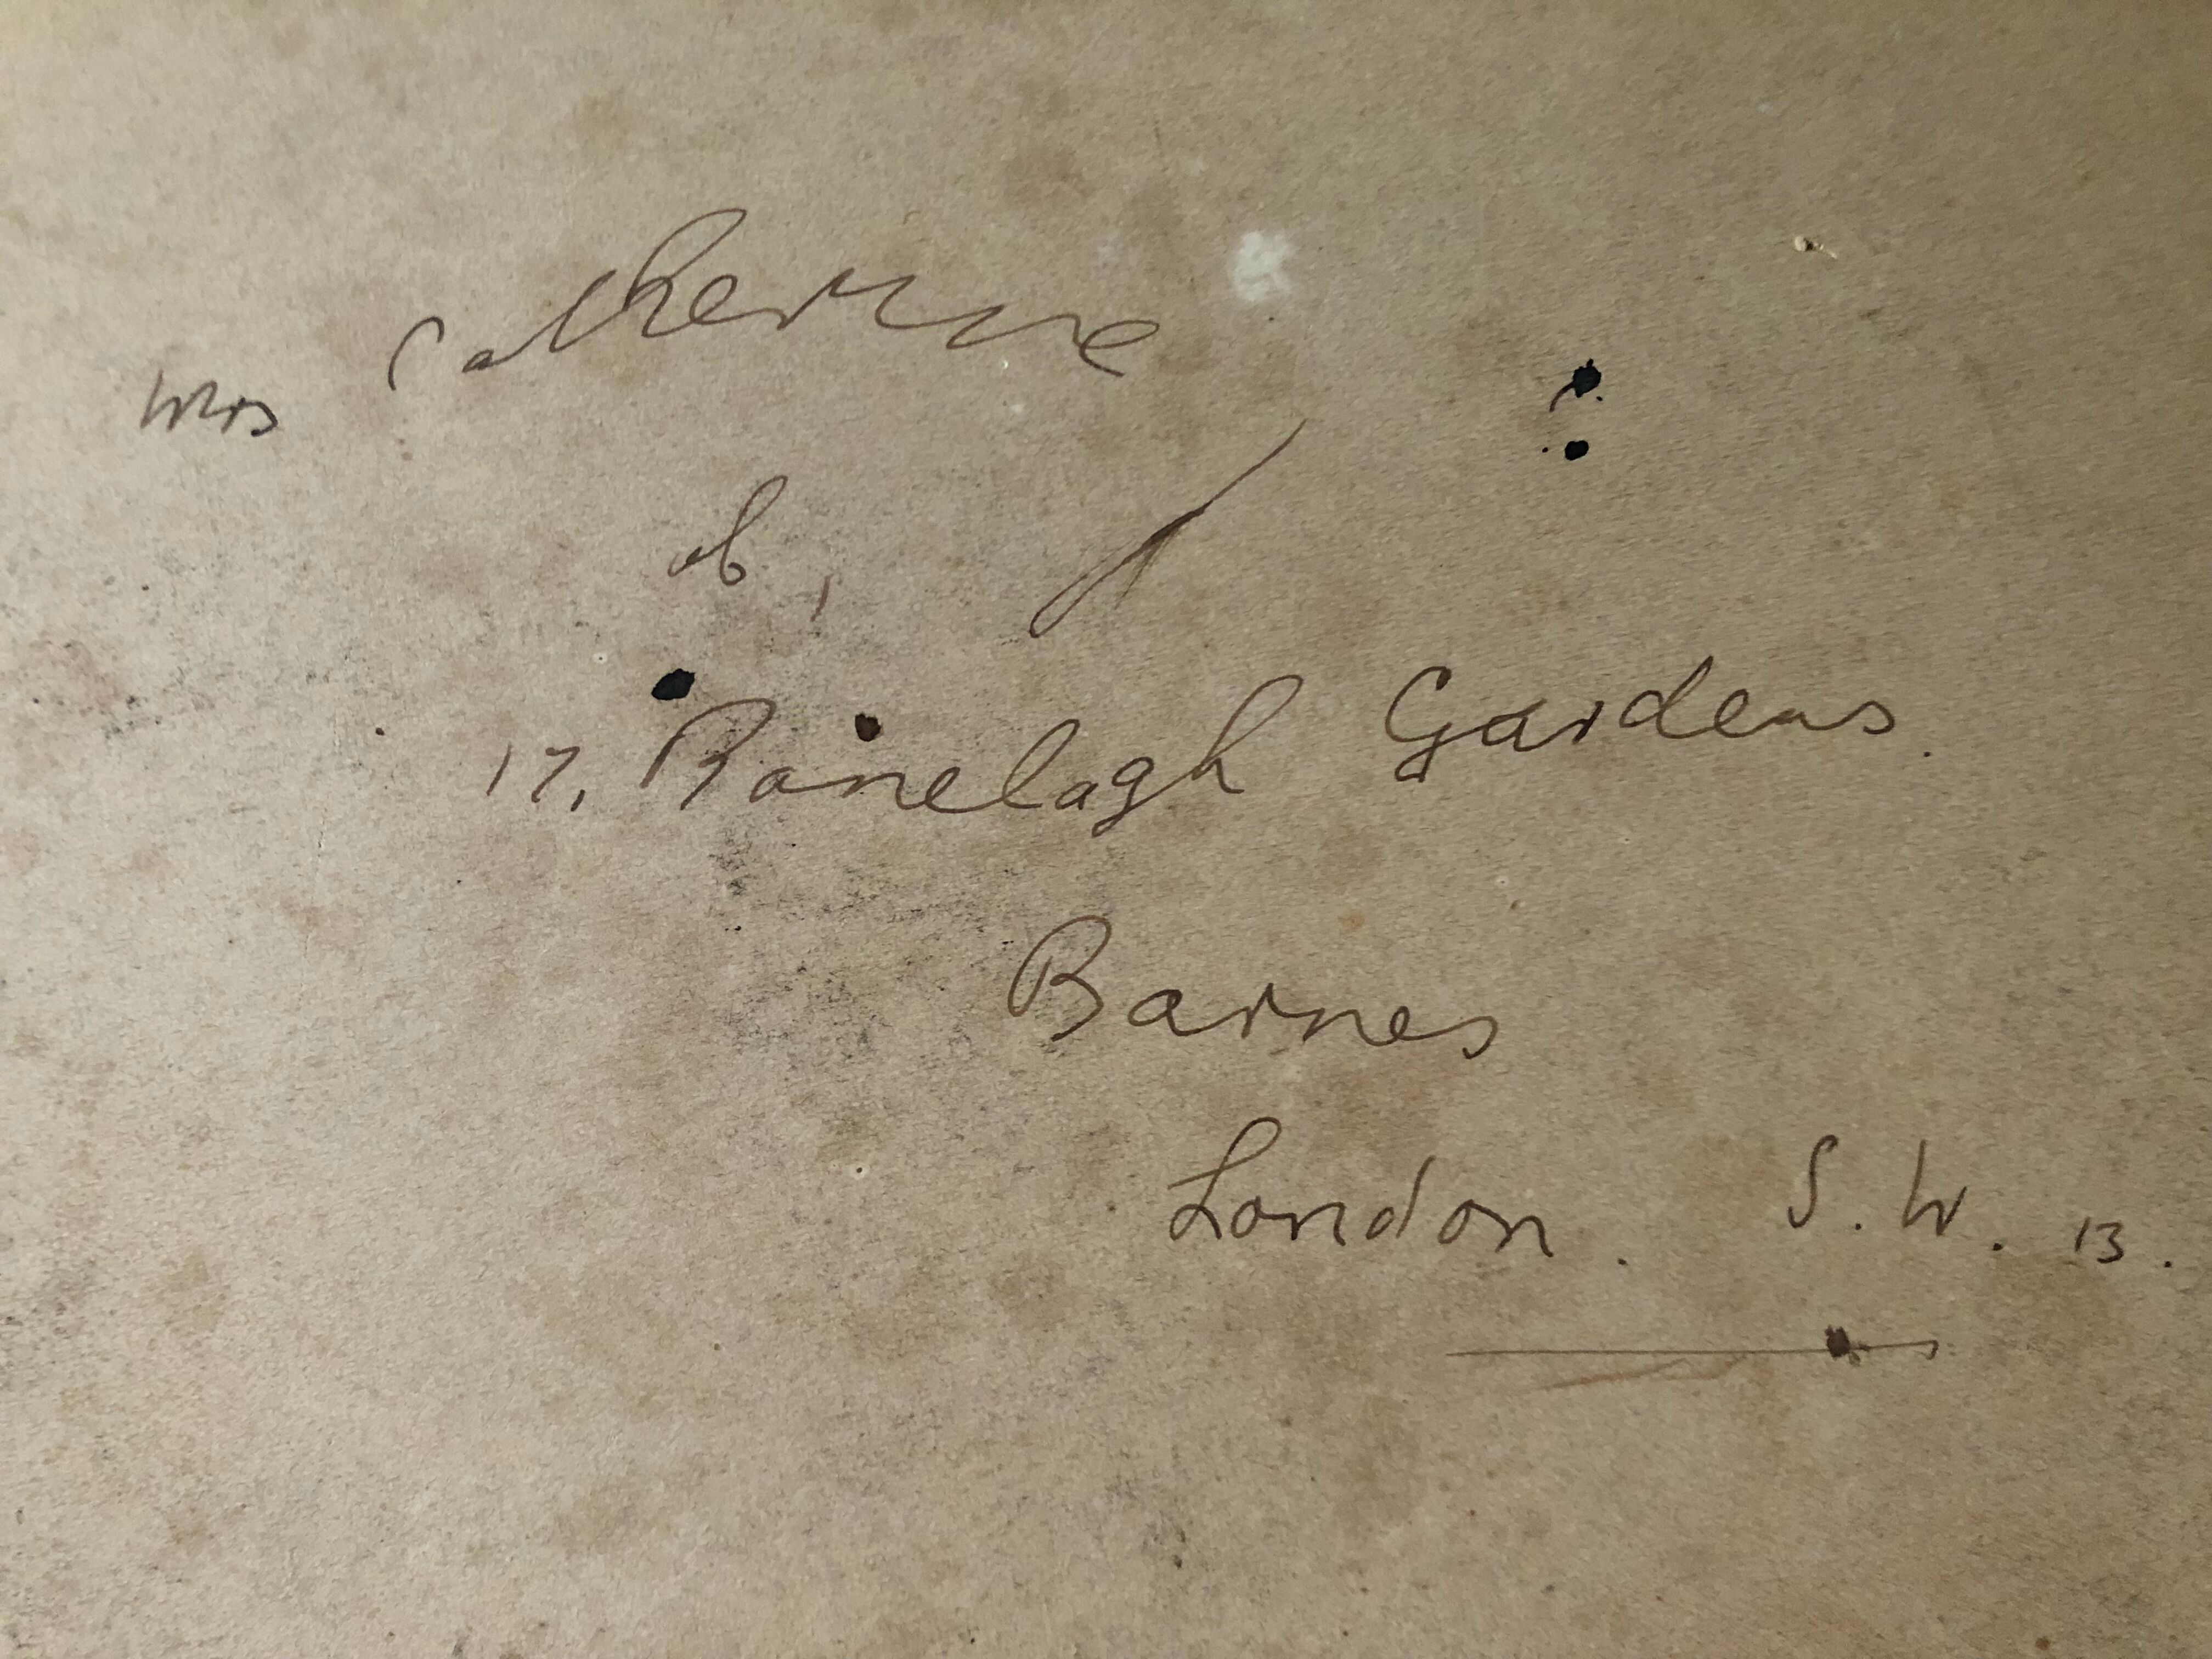 Mrs Catherine
of,
17, Ranelagh Gardens.
Barnes
London. S.W. 13.